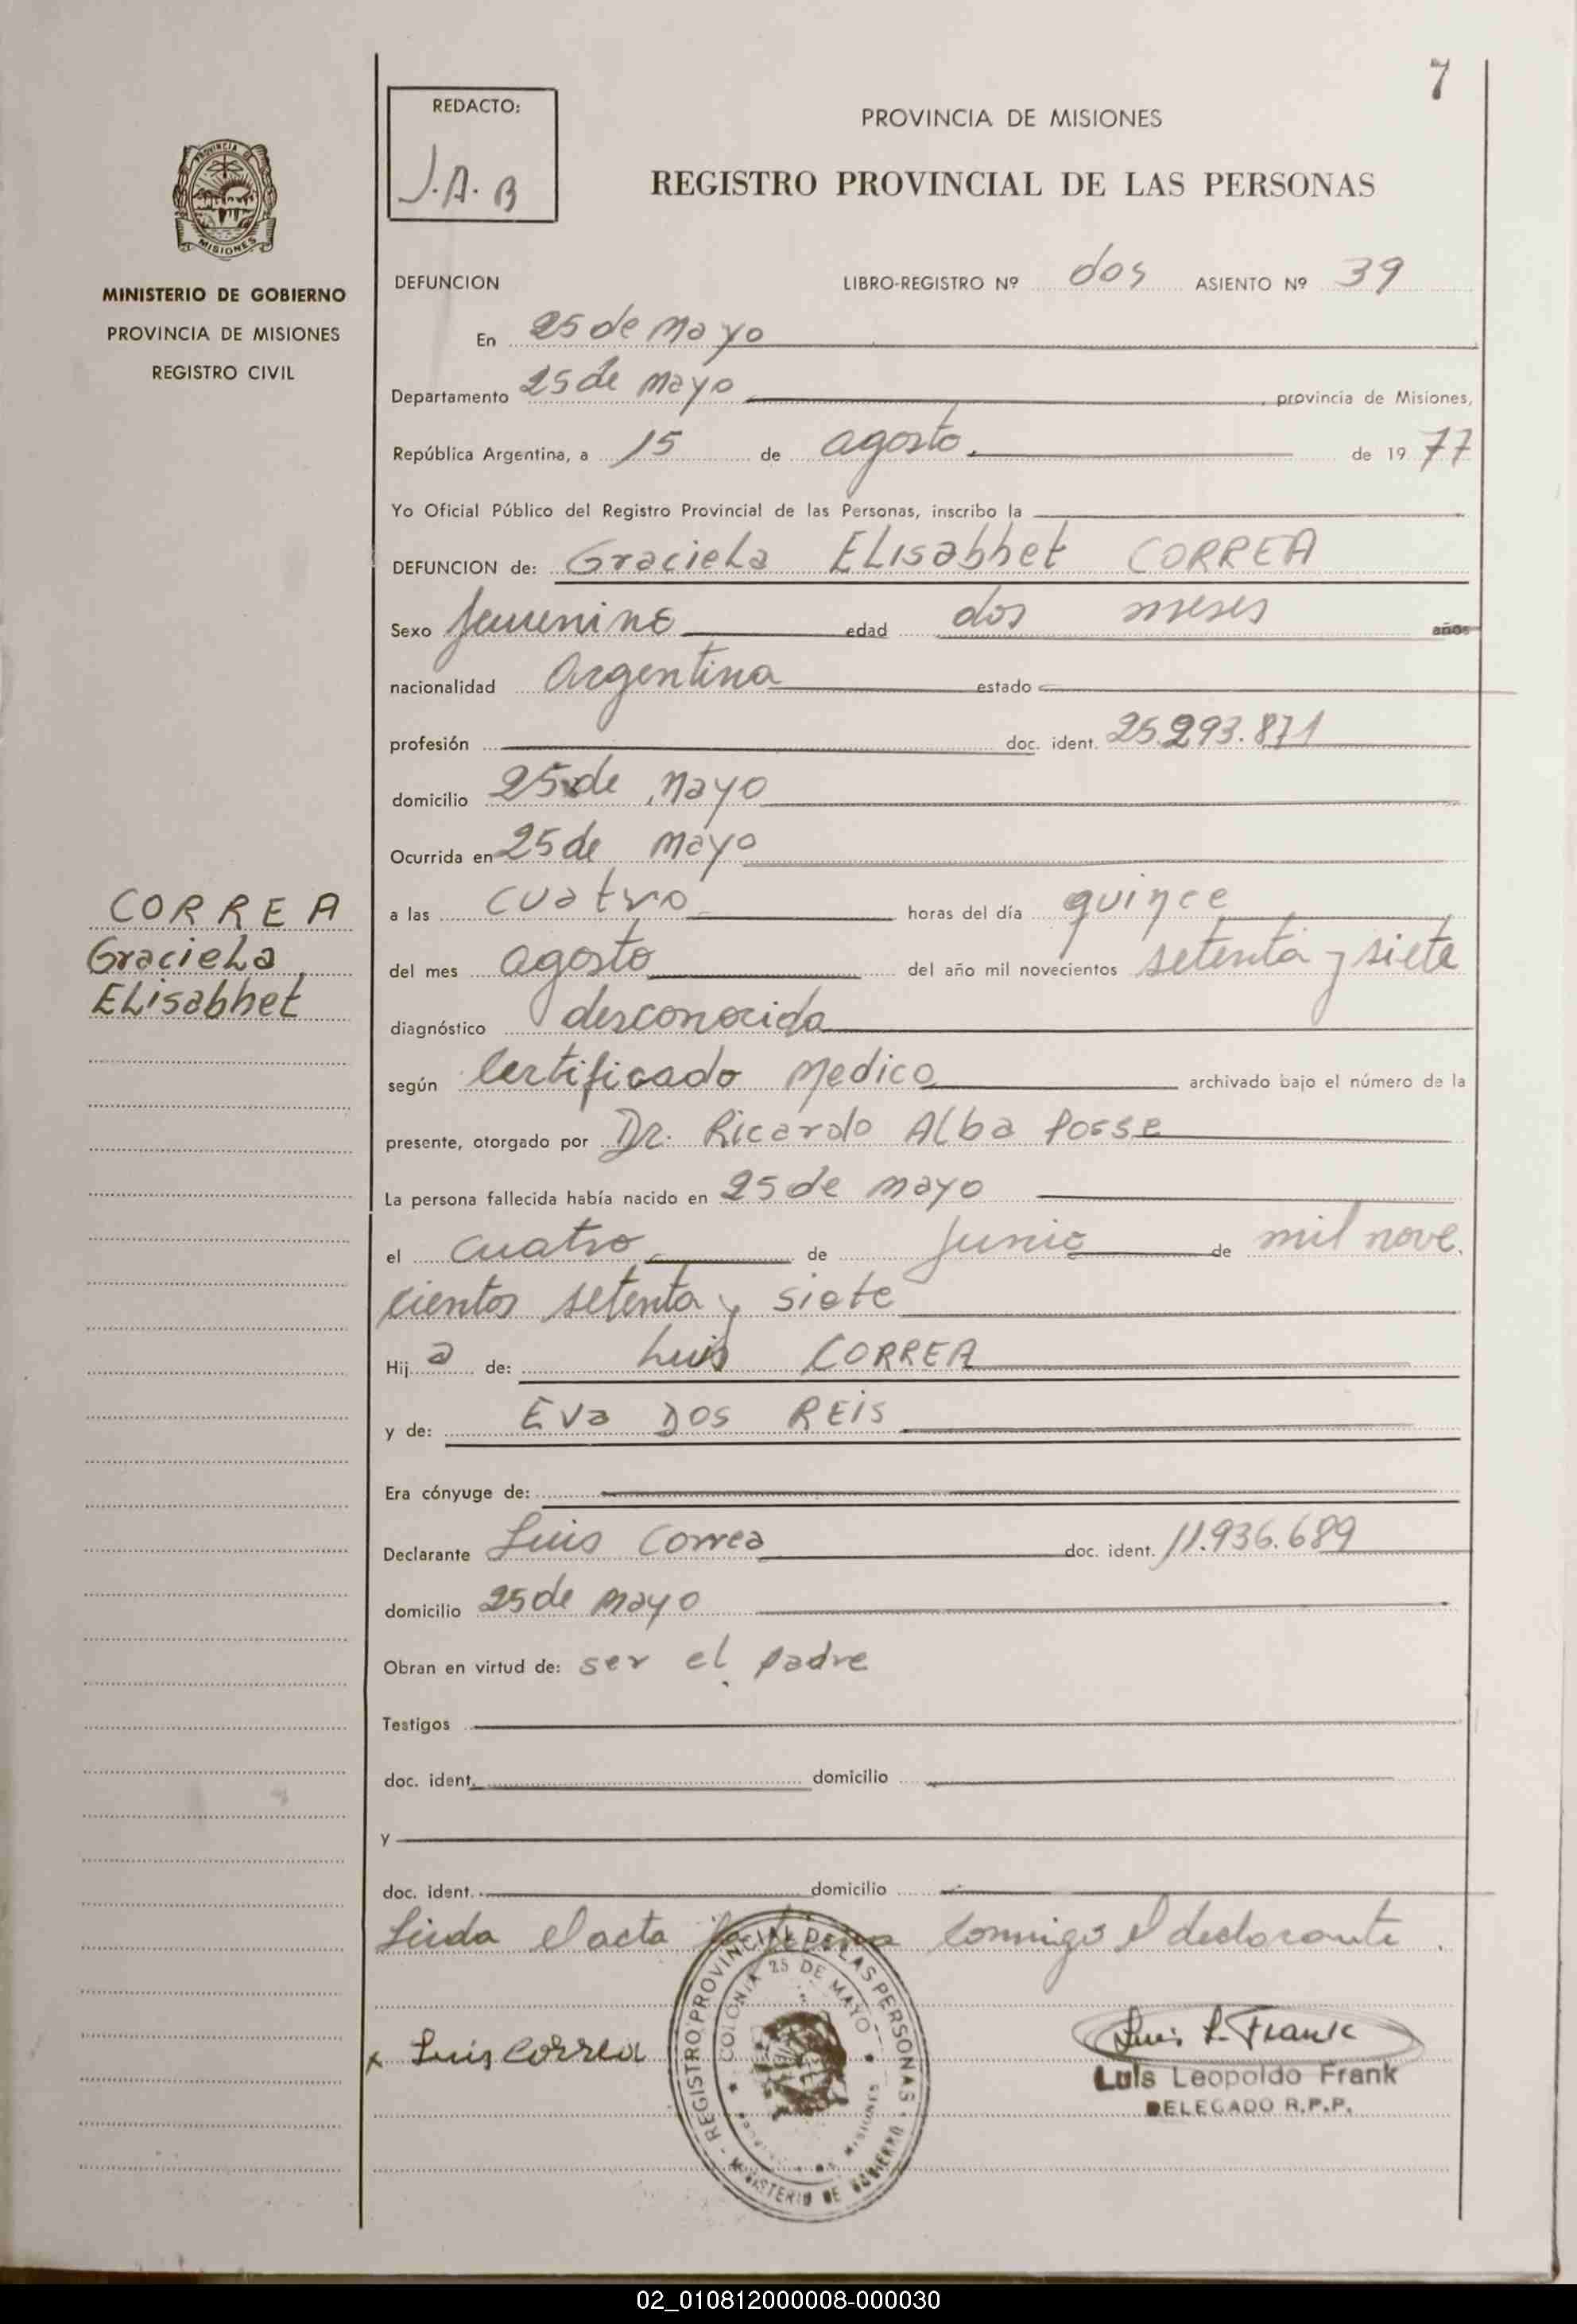 7
REDACTO:
J.A.B
PROVINCIA DE MISIONES
REGISTRO PROVINCIAL DE LAS PERSONAS
PROVINCIA DE
MISIONES
MINISTERIO DE GOBIERNO
PROVINCIA DE MISIONES
REGISTRO CIVIL
DEFUNCION LIBRO-REGISTRO Nº dos ASIENTO Nº 39
En 25 de Mayo
Departamento 25 de Mayo, provincia de Misiones,
República Argentina, a 15 de agosto. de 1977
Yo Oficial Público del Registro Provincial de las Personas, inscribo la
DEFUNCION de: Graciela ELisabhet CORREA
Sexo femenino edad dos meses años
nacionalidad Argentina estado
profesión doc. ident. 25.293.871
domicilio 25 de Mayo
Ocurrida en 25 de Mayo
a las cuatro horas del día quince
del mes agosto del año mil novecientos setenta y siete
diagnóstico desconocida
según Certificado Medico archivado bajo el número de la
presente, otorgado por Dr. Ricardo Alba Posse
La persona fallecida había nacido en 25 de Mayo
el cuatro de Junio de mil nove
cientos setenta y siete
Hija de: Luis CORREA
y de: Eva DOS REIS
Era cónyuge de:
Declarante Luis Correa doc. ident. 11.936.689
domicilio 25 de Mayo
Obran en virtud de: ser el padre
Testigos
doc. ident. domicilio
y
doc. ident. domicilio
Leida el acta la firma conmigo el declarante.
CORREA
Graciela
ELisabhet
x Luis Correa
REGISTRO PROVINCIAL DE LAS PERSONAS
MINISTERIO DE GOBIERNO
COLONIA 25 DE MAYO
MISIONES
Luis L. Frank
Luis Leopoldo Frank
DELEGADO R.P.P.
02_010812000008-000030